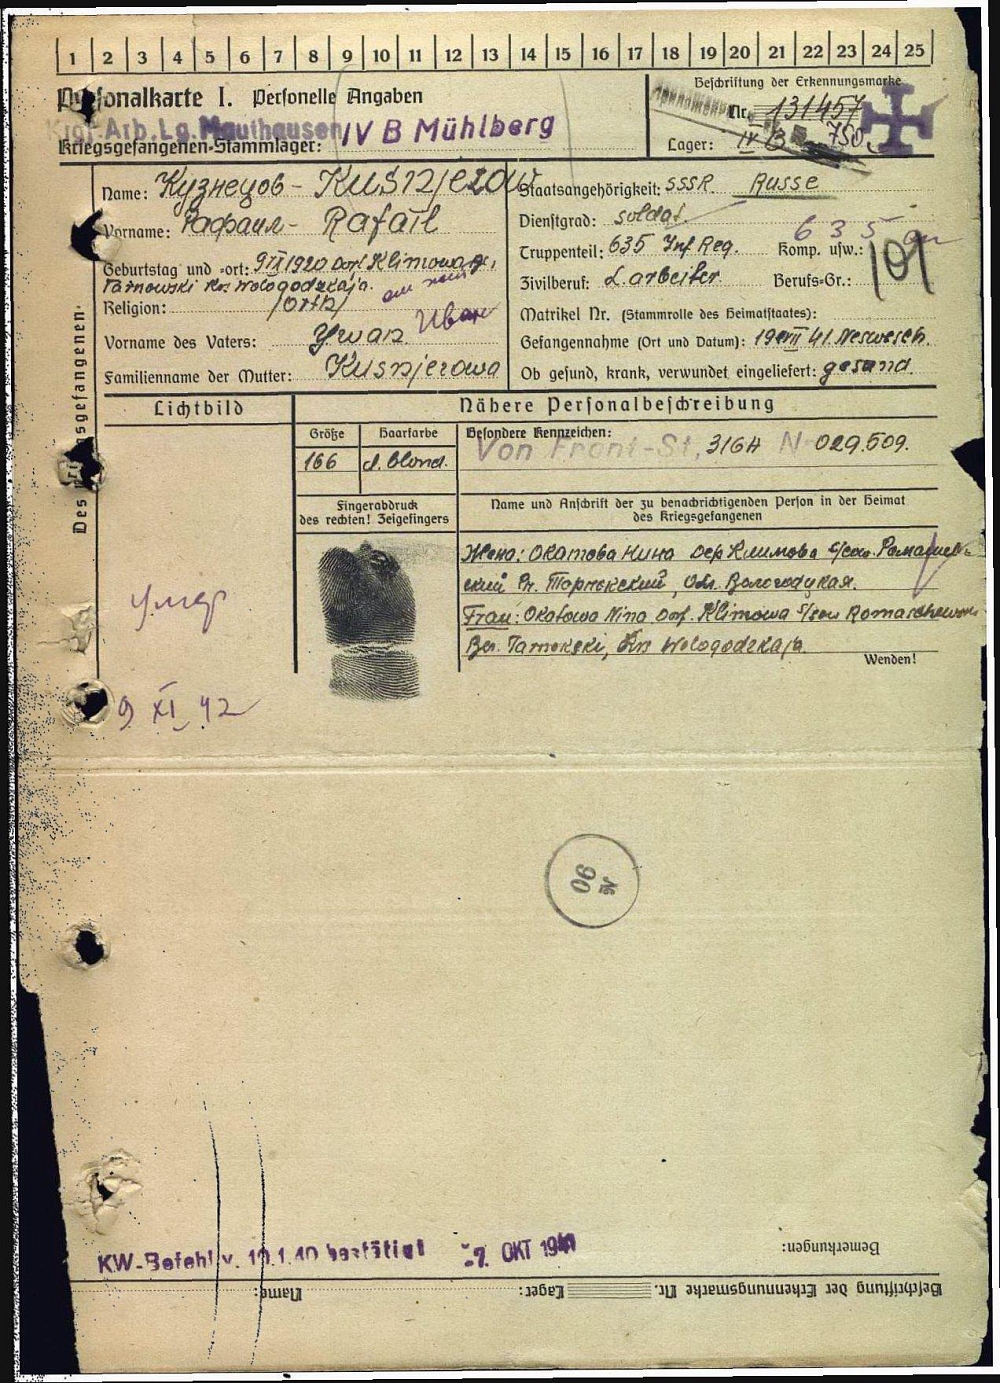 1 2 3 4 5 6 7 8 9 10 11 12 13 14 15 16 17 18 19 20 21 22 23 24 25
Personalkarte I. Personelle Angaben
Beschriftung der Erkennungsmarke
Kgf. Arb. Lg. Mauthausen
IV B Mühlberg
Nr. 131457
Kriegsgefangenen-Stammlager:
Lager: IV B 750
Des Kriegsgefangenen
Name: Кузнецов - Kusnjezow
Vorname: Рафаил - Rafail
Geburtstag und -ort: 9 III 1920 Dorf Klimowa
Religion: /Orth/
Vorname des Vaters: Ywan Иван
Familienname der Mutter: Kusnjezowa
Staatsangehörigkeit: SSSR Russe
Dienstgrad: soldat
635
Truppenteil: 635 Inf. Reg. Komp. usw.:
101
Zivilberuf: L. arbeiter. Berufs-Gr.:
Matrikel Nr. (Stammrolle des Heimatstaates):
Gefangennahme (Ort und Datum): 19 VII 41.
Ob gesund, krank, verwundet eingeliefert: gesund.
Lichtbild
Nähere Personalbeschreibung
Größe Haarfarbe Besondere Kennzeichen:
166 d. blond.
Von Front-St. 316H N 029.509.
Fingerabdruck
des rechten! Zeigefingers
Name und Anschrift der zu benachrichtigenden Person in der Heimat
des Kriegsgefangenen
Жена: Окатова Нина Дер. Климова с/сов. Ромашев-
ский Рн. Тарнокский, Обл. Вологодцкая.
Frau: Okatowa Nina Dorf. Klimowa S/sow Romaschewski
Ber. Tarnokski, Wologodzkaja.
Wenden!
умер
9 XI 42
90
KW-Befehl v. 10.1.40 bestätigt
-7. OKT 1941
Bemerkungen:
Beschriftung der Erkennungsmarke Nr. Lager: Name: